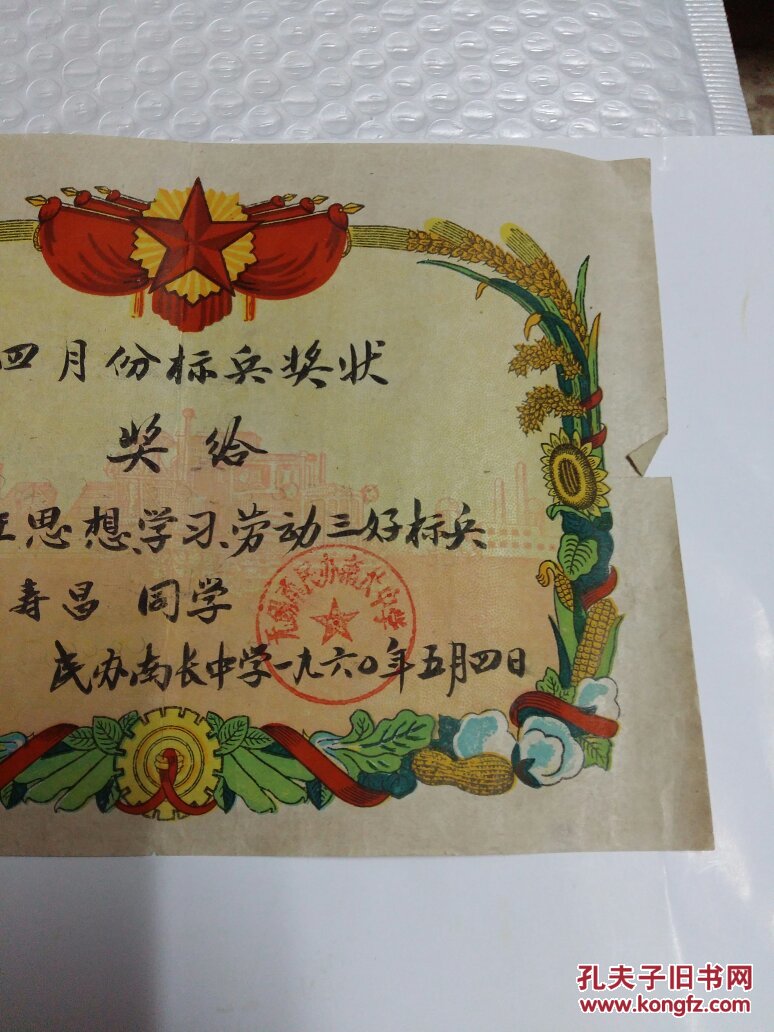 四月份标兵奖状
奖给
思想、学习、劳动三好标兵
寿昌 同学
无锡市民办南长中学
民办南长中学一九六〇年五月四日
孔夫子旧书网
www.kongfz.com